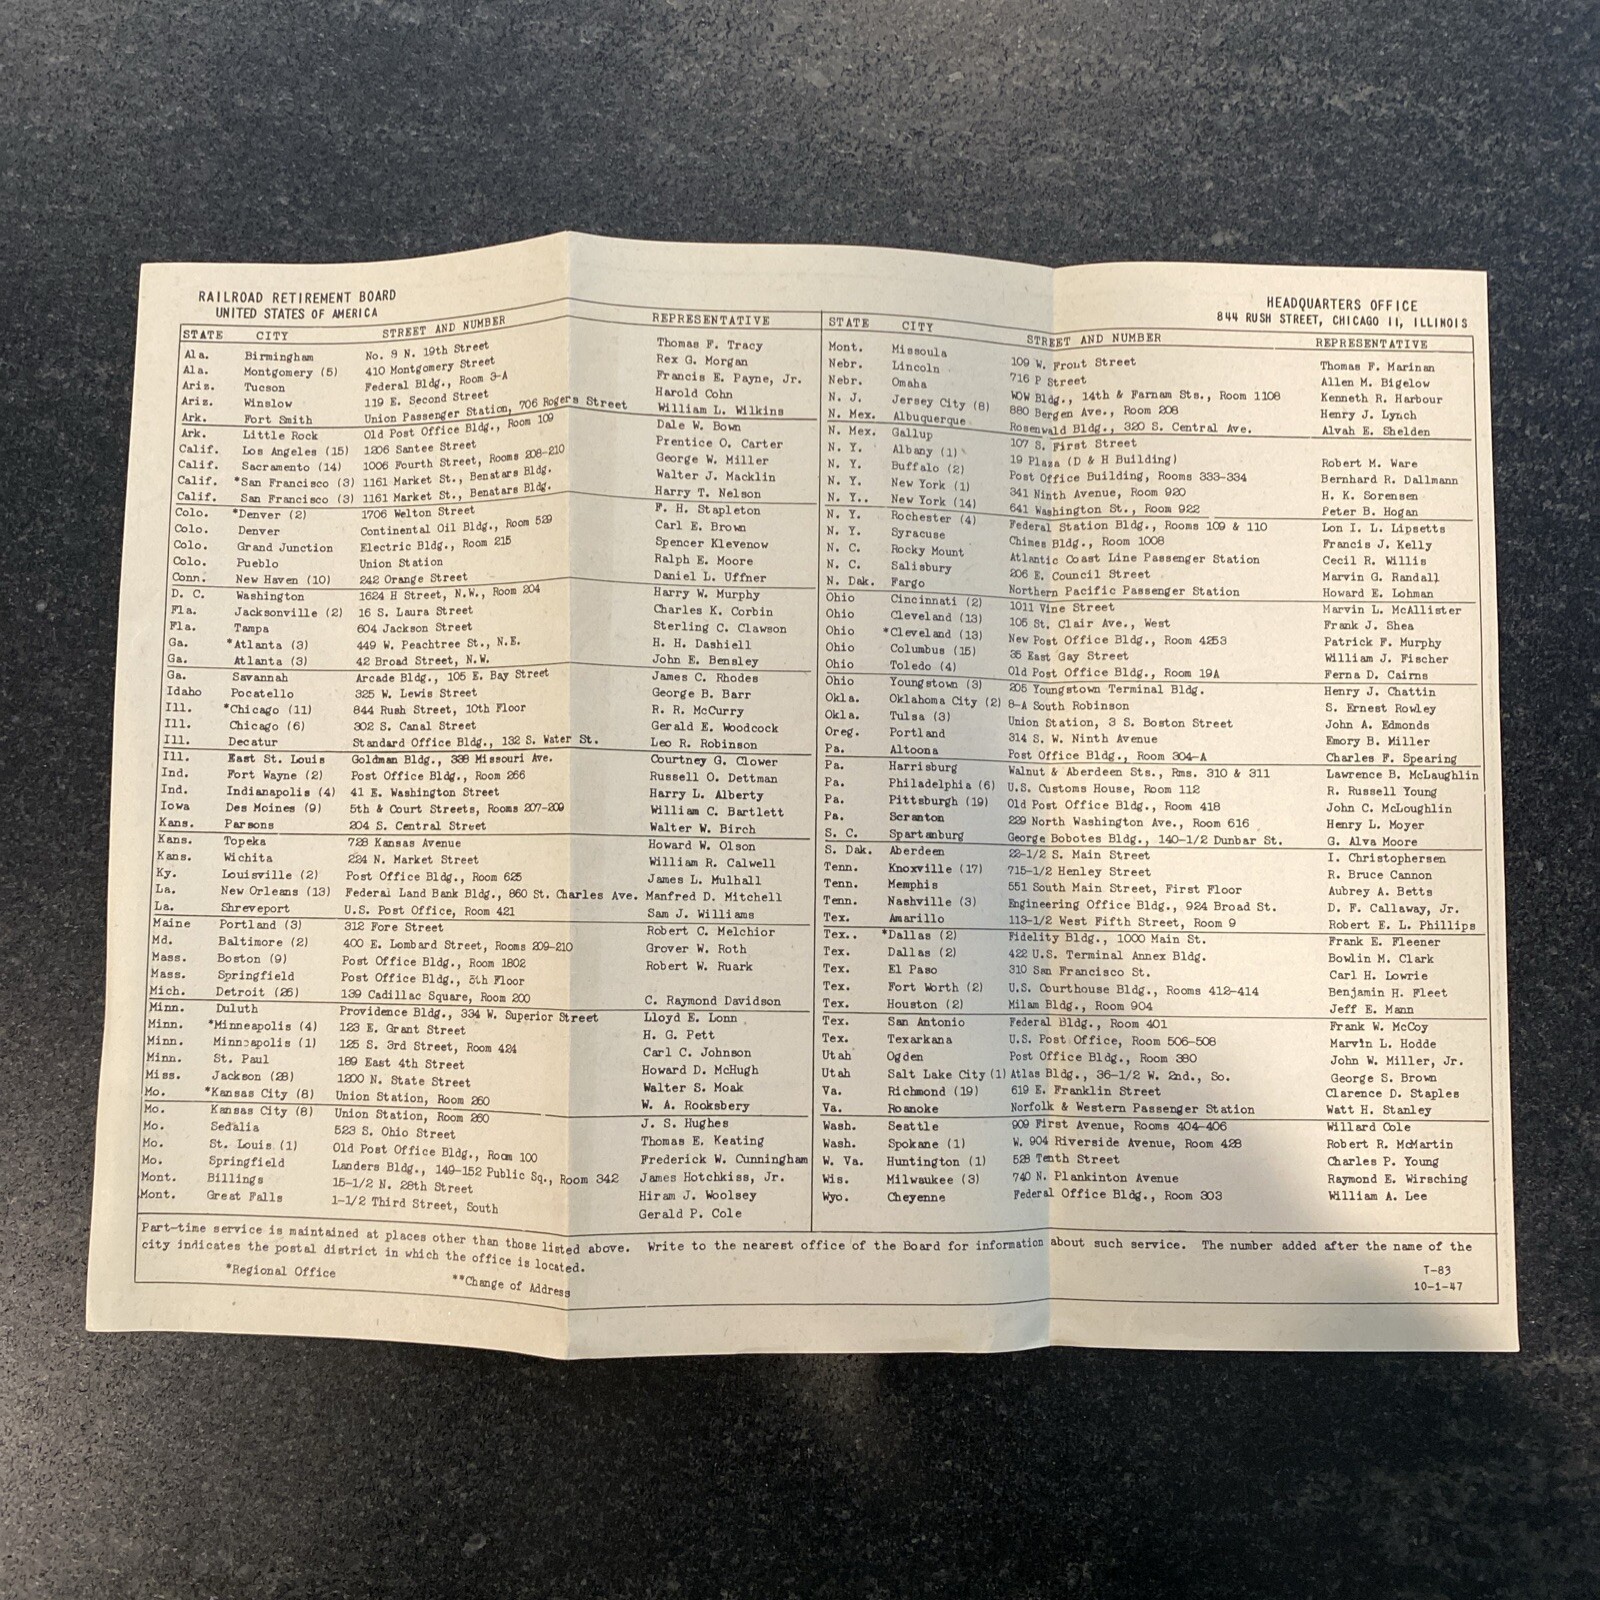 RAILROAD RETIREMENT BOARD
UNITED STATES OF AMERICA
HEADQUARTERS OFFICE
844 RUSH STREET, CHICAGO 11, ILLINOIS
STATE CITY STREET AND NUMBER REPRESENTATIVE
Ala. Birmingham No. 9 N. 19th Street Thomas F. Tracy
Ala. Montgomery (5) 410 Montgomery Street Rex G. Morgan
Ariz. Tucson Federal Bldg., Room 3-A Francis E. Payne, Jr.
Ariz. Winslow 119 E. Second Street Harold Cohn
Ark. Fort Smith Union Passenger Station, 706 Rogers Street William L. Wilkins
Ark. Little Rock Old Post Office Bldg., Room 109 Dale W. Bown
Calif. Los Angeles (15) 1206 Santee Street Prentice O. Carter
Calif. Sacramento (14) 1006 Fourth Street, Rooms 208-210 George W. Miller
Calif. *San Francisco (3) 1161 Market St., Benatars Bldg. Walter J. Macklin
Calif. San Francisco (3) 1161 Market St., Benatars Bldg. Harry T. Nelson
Colo. *Denver (2) 1706 Welton Street F. H. Stapleton
Colo. Denver Continental Oil Bldg., Room 529 Carl E. Brown
Colo. Grand Junction Electric Bldg., Room 215 Spencer Klevenow
Colo. Pueblo Union Station Ralph E. Moore
Conn. New Haven (10) 242 Orange Street Daniel L. Uffner
D. C. Washington 1624 H Street, N.W., Room 204 Harry W. Murphy
Fla. Jacksonville (2) 16 S. Laura Street Charles K. Corbin
Fla. Tampa 604 Jackson Street Sterling C. Clawson
Ga. *Atlanta (3) 449 W. Peachtree St., N.E. H. H. Dashiell
Ga. Atlanta (3) 42 Broad Street, N.W. John E. Bensley
Ga. Savannah Arcade Bldg., 105 E. Bay Street James C. Rhodes
Idaho Pocatello 325 W. Lewis Street George B. Barr
Ill. *Chicago (11) 844 Rush Street, 10th Floor R. R. McCurry
Ill. Chicago (6) 302 S. Canal Street Gerald E. Woodcock
Ill. Decatur Standard Office Bldg., 132 S. Water St. Leo R. Robinson
Ill. East St. Louis Goldman Bldg., 338 Missouri Ave. Courtney G. Clower
Ind. Fort Wayne (2) Post Office Bldg., Room 266 Russell O. Dettman
Ind. Indianapolis (4) 41 E. Washington Street Harry L. Alberty
Iowa Des Moines (9) 5th & Court Streets, Rooms 207-209 William C. Bartlett
Kans. Parsons 204 S. Central Street Walter W. Birch
Kans. Topeka 728 Kansas Avenue Howard W. Olson
Kans. Wichita 224 N. Market Street William R. Calwell
Ky. Louisville (2) Post Office Bldg., Room 625 James L. Mulhall
La. New Orleans (13) Federal Land Bank Bldg., 860 St. Charles Ave. Manfred D. Mitchell
La. Shreveport U.S. Post Office, Room 421 Sam J. Williams
Maine Portland (3) 312 Fore Street Robert C. Melchior
Md. Baltimore (2) 400 E. Lombard Street, Rooms 209-210 Grover W. Roth
Mass. Boston (9) Post Office Bldg., Room 1802 Robert W. Ruark
Mass. Springfield Post Office Bldg., 5th Floor
Mich. Detroit (26) 139 Cadillac Square, Room 200 C. Raymond Davidson
Minn. Duluth Providence Bldg., 334 W. Superior Street Lloyd E. Lonn
Minn. *Minneapolis (4) 123 E. Grant Street H. G. Pett
Minn. Minneapolis (1) 125 S. 3rd Street, Room 424 Carl C. Johnson
Minn. St. Paul 189 East 4th Street Howard D. McHugh
Miss. Jackson (28) 1200 N. State Street Walter S. Moak
Mo. *Kansas City (8) Union Station, Room 260 W. A. Rooksbery
Mo. Kansas City (8) Union Station, Room 260 J. S. Hughes
Mo. Sedalia 523 S. Ohio Street Thomas E. Keating
Mo. St. Louis (1) Old Post Office Bldg., Room 100 Frederick W. Cunningham
Mo. Springfield Landers Bldg., 149-152 Public Sq., Room 342 James Hotchkiss, Jr.
Mont. Billings 15-1/2 N. 28th Street Hiram J. Woolsey
Mont. Great Falls 1-1/2 Third Street, South Gerald P. Cole
STATE CITY STREET AND NUMBER REPRESENTATIVE
Mont. Missoula 109 W. Front Street Thomas F. Marinan
Nebr. Lincoln 716 P Street Allen M. Bigelow
Nebr. Omaha WOW Bldg., 14th & Farnam Sts., Room 1108 Kenneth R. Harbour
N. J. Jersey City (8) 880 Bergen Ave., Room 208 Henry J. Lynch
N. Mex. Albuquerque Rosenwald Bldg., 320 S. Central Ave. Alvah E. Shelden
N. Mex. Gallup 107 S. First Street
N. Y. Albany (1) 19 Plaza (D & H Building) Robert M. Ware
N. Y. Buffalo (2) Post Office Building, Rooms 333-334 Bernhard R. Dallmann
N. Y. New York (1) 341 Ninth Avenue, Room 920 H. K. Sorensen
N. Y.. New York (14) 641 Washington St., Room 922 Peter B. Hogan
N. Y. Rochester (4) Federal Station Bldg., Rooms 109 & 110 Lon I. L. Lipsetts
N. Y. Syracuse Chimes Bldg., Room 1008 Francis J. Kelly
N. C. Rocky Mount Atlantic Coast Line Passenger Station Cecil R. Willis
N. C. Salisbury 206 E. Council Street Marvin G. Randall
N. Dak. Fargo Northern Pacific Passenger Station Howard E. Lohman
Ohio Cincinnati (2) 1011 Vine Street Marvin L. McAllister
Ohio Cleveland (13) 105 St. Clair Ave., West Frank J. Shea
Ohio *Cleveland (13) New Post Office Bldg., Room 4253 Patrick F. Murphy
Ohio Columbus (15) 35 East Gay Street William J. Fischer
Ohio Toledo (4) Old Post Office Bldg., Room 19A Ferna D. Cairns
Ohio Youngstown (3) 205 Youngstown Terminal Bldg. Henry J. Chattin
Okla. Oklahoma City (2) 8-A South Robinson S. Ernest Rowley
Okla. Tulsa (3) Union Station, 3 S. Boston Street John A. Edmonds
Oreg. Portland 314 S. W. Ninth Avenue Emory B. Miller
Pa. Altoona Post Office Bldg., Room 304-A Charles F. Spearing
Pa. Harrisburg Walnut & Aberdeen Sts., Rms. 310 & 311 Lawrence B. McLaughlin
Pa. Philadelphia (6) U.S. Customs House, Room 112 R. Russell Young
Pa. Pittsburgh (19) Old Post Office Bldg., Room 418 John C. McLoughlin
Pa. Scranton 229 North Washington Ave., Room 616 Henry L. Moyer
S. C. Spartanburg George Bobotes Bldg., 140-1/2 Dunbar St. G. Alva Moore
S. Dak. Aberdeen 22-1/2 S. Main Street I. Christophersen
Tenn. Knoxville (17) 715-1/2 Henley Street R. Bruce Cannon
Tenn. Memphis 551 South Main Street, First Floor Aubrey A. Betts
Tenn. Nashville (3) Engineering Office Bldg., 924 Broad St. D. F. Callaway, Jr.
Tex. Amarillo 113-1/2 West Fifth Street, Room 9 Robert E. L. Phillips
Tex.. *Dallas (2) Fidelity Bldg., 1000 Main St. Frank E. Fleener
Tex. Dallas (2) 422 U.S. Terminal Annex Bldg. Bowlin M. Clark
Tex. El Paso 310 San Francisco St. Carl H. Lowrie
Tex. Fort Worth (2) U.S. Courthouse Bldg., Rooms 412-414 Benjamin H. Fleet
Tex. Houston (2) Milam Bldg., Room 904 Jeff E. Mann
Tex. San Antonio Federal Bldg., Room 401 Frank W. McCoy
Tex. Texarkana U.S. Post Office, Room 506-508 Marvin L. Hodde
Utah Ogden Post Office Bldg., Room 380 John W. Miller, Jr.
Utah Salt Lake City (1) Atlas Bldg., 36-1/2 W. 2nd., So. George S. Brown
Va. Richmond (19) 619 E. Franklin Street Clarence D. Staples
Va. Roanoke Norfolk & Western Passenger Station Watt H. Stanley
Wash. Seattle 909 First Avenue, Rooms 404-406 Willard Cole
Wash. Spokane (1) W. 904 Riverside Avenue, Room 428 Robert R. McMartin
W. Va. Huntington (1) 528 Tenth Street Charles P. Young
Wis. Milwaukee (3) 740 N. Plankinton Avenue Raymond E. Wirsching
Wyo. Cheyenne Federal Office Bldg., Room 303 William A. Lee
Part-time service is maintained at places other than those listed above. Write to the nearest office of the Board for information about such service. The number added after the name of the
city indicates the postal district in which the office is located.
*Regional Office **Change of Address
T-83
10-1-47